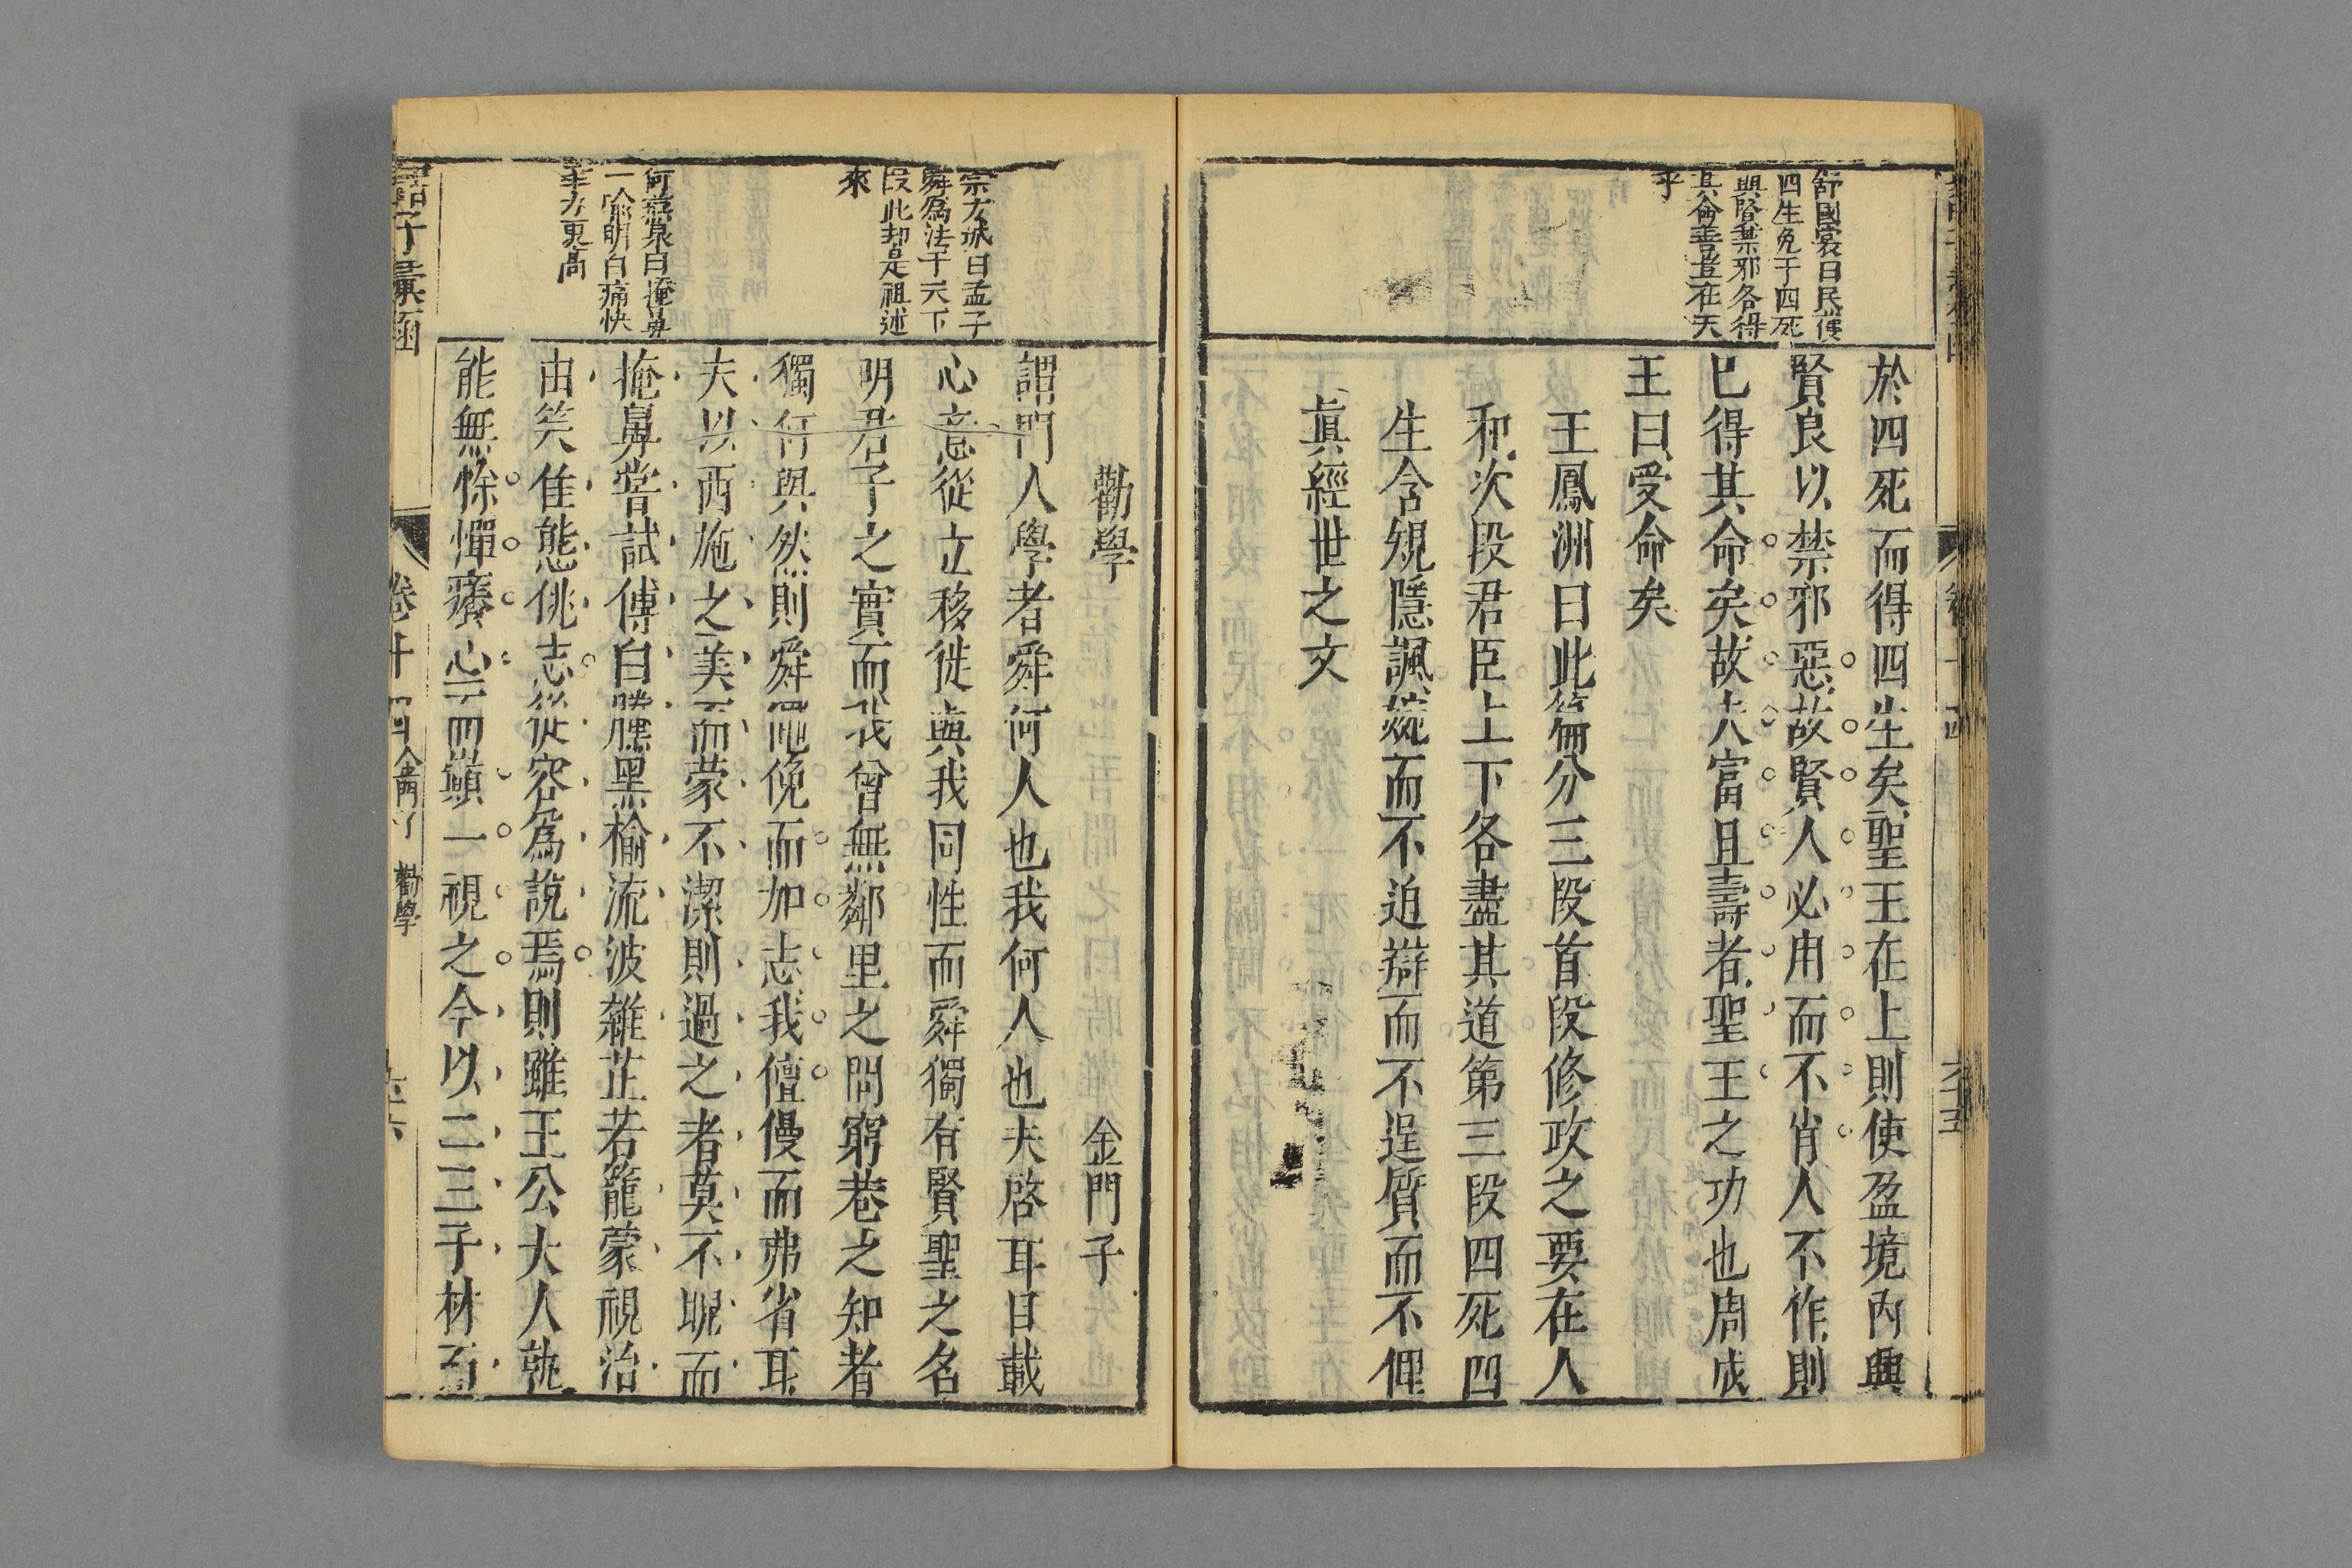 舒國裳曰民獲
四生免于四死
與賢禁邪各得
其命善豈在天
乎
於四死而得四生矣聖王在上則使盈境內興
賢良以禁邪惡故賢人必用而不肖人不作則
已得其命矣故夫富且壽者聖王之功也周成
王曰受命矣
王鳳洲曰此篇分三段首段修政之要在人
和次段君臣上下各盡其道第三段四死四
生含規隱諷婉而不迫辯而不逞質而不俚
真經世之文
勸學
金門子
宗方城曰孟子
舜為法于天下
段此却是祖述
來
何燕泉曰掩鼻
一喻明白痛快
筆力更高
謂門人學者舜何人也我何人也夫啓耳目載
心意從立移徙與我同性而舜獨有賢聖之名
明君子之實而我曾無鄰里之問窮巷之知者
獨何與然則舜僶俛而加志我儃僈而弗省耳
夫以西施之美而蒙不潔則過之者莫不睨而
掩鼻嘗試傅白黱黑榆流波雜芷若籠蒙視治
由笑佳態佻志從容為說焉則雖王公大人孰
能無悇憚癢心而巔一視之今以二三子材而
諸子彙函
卷十四
金門子
勸學
六十六